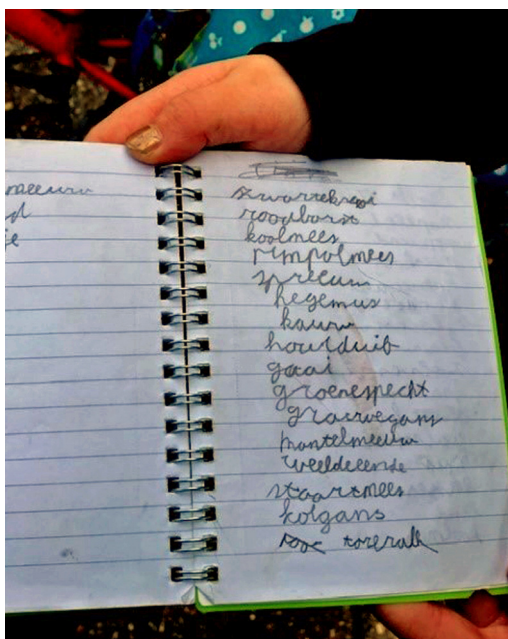 meeuw
d
je
zwartekraai
roodborst
koolmees
pimpolmees
spreeuw
hegemus
kauw
houtduib
gaai
groenespecht
grauwegans
mantelmeeuw
weeldeeende
staartmees
kolgans
torenvalk